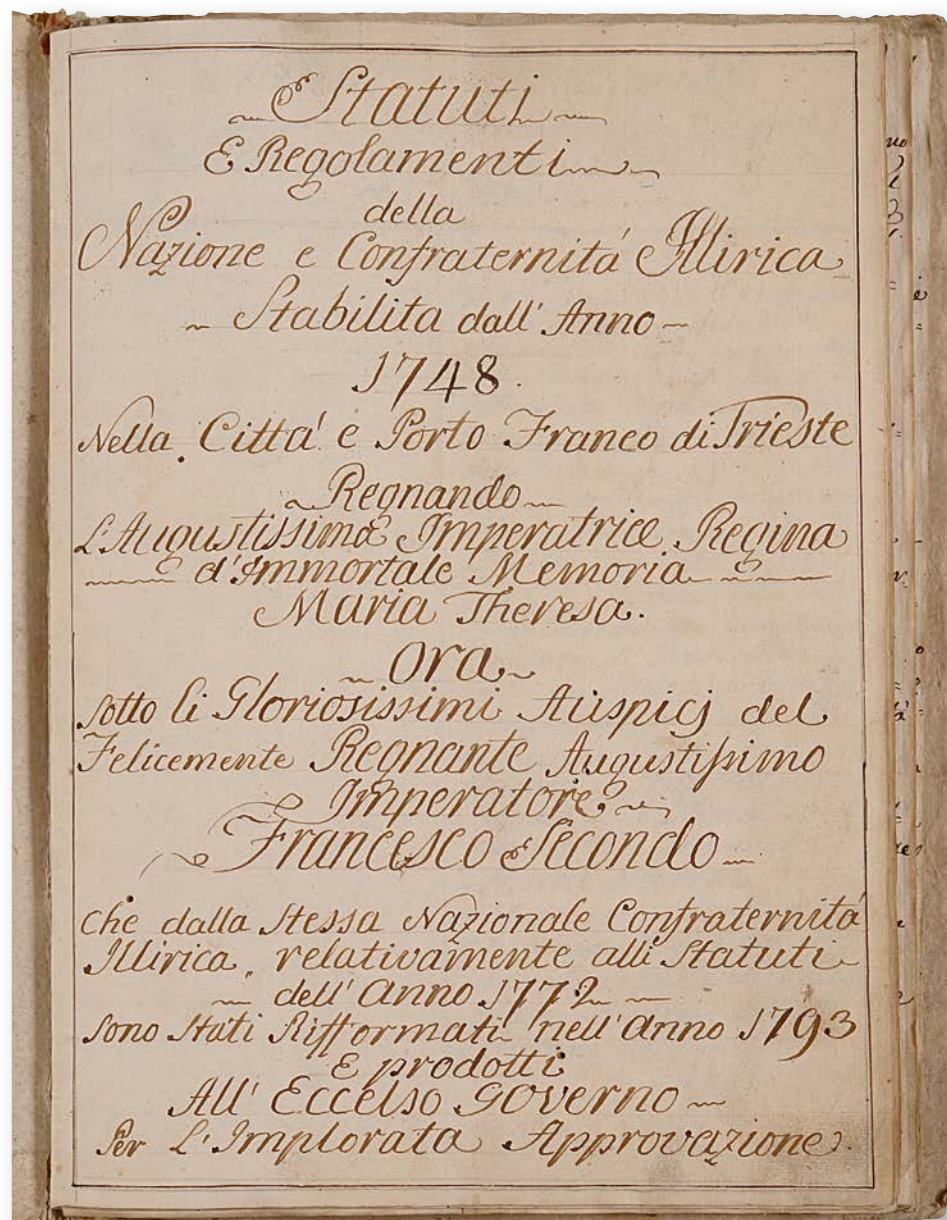 Statuti
E Regolamenti
della
Nazione e Confraternitá Illirica
Stabilita dall' Anno
1748.
Nella Cittá e Porto Franco di Trieste
Regnando
L'Augustissima Imperatrice Regina
d'Immortale Memoria
Maria Theresa.
Ora
sotto li Gloriosissimi Auspicj del
Felicemente Regnante Augustissimo
Imperatore
Francesco Secondo
che dalla Stessa Nazionale Confraternitá
Illirica, relativamente alli Statuti
dell' Anno 1772
sono Stati Rifformati nell' Anno 1793
E prodotti
All' Eccelso Governo
Per L'Implorata Approvazione.